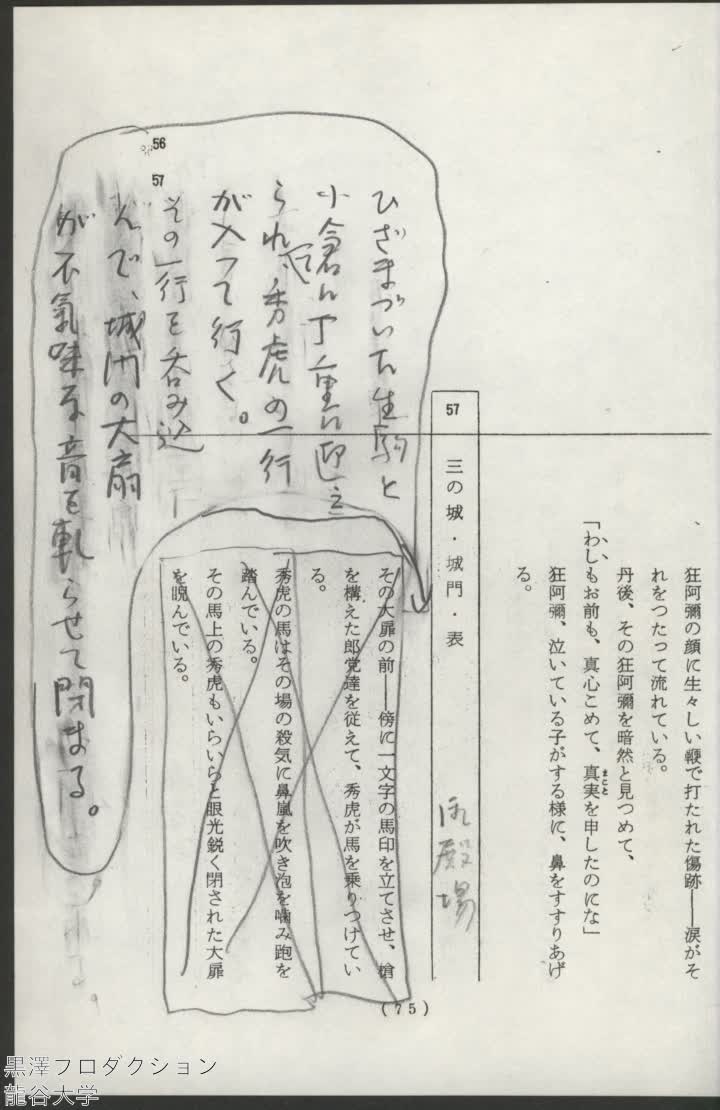 狂阿彌の顔に生々しい鞭で打たれた傷跡――涙がそ
れをつたって流れている。
丹後、その狂阿彌を暗然と見つめて、
「わしもお前も、真心こめて、真実を申したのにな」
まこと
狂阿彌、泣いている子がする様に、鼻をすすりあげ
る。
57 三の城・城門・表
御殿場
その大扉の前――傍に一文字の馬印を立てさせ、槍
を構えた郎党達を従えて、秀虎が馬を乗りつけてい
る。
秀虎の馬はその場の殺気に鼻嵐を吹き泡を噛み跑を
踏んでいる。
その馬上の秀虎もいらいらと眼光鋭く閉された大扉
を睨んでいる。
ひざまづいた生駒と
小倉に丁重に迎え
られて、秀虎の一行
が入って行く。
その一行を呑み込
んで、城門の大扇
が不氣味な音を軋らせて閉まる。
56
57
(75)
黒澤プロダクション
龍谷大学